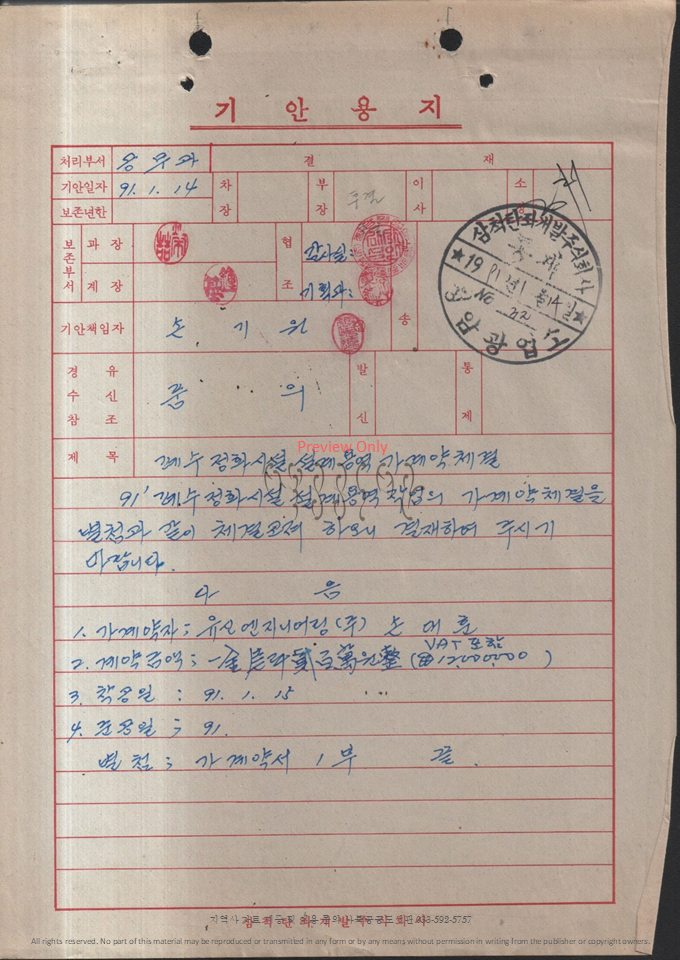 기 안 용 지
처리부서 용무과 결 재
기안일자 91. 1. 14 차장 부장 이사 소장
보존년한
보존부서 과장 협조 감사실:
계장 기획과:
삼척탄좌개발주식회사
★ 19 91년 1월 14일 ★
No 22
암광업소
기안책임자 손 기 원 발송
경유 수신 참조 품 의 발신 통제
제 목 폐수 정화시설 설계용역 가계약체결
Preview Only
91' 폐수정화시설 설계용역작업의 가계약체결을
별첨과 같이 체결코져 하오니 결재하여 주시기
바랍니다.
다 음
1. 가계약자; 유신엔지니어링(주) 손 대 호
VAT 포함
2. 계약금액; 一金 壹千貳百萬원整 (₩12,000,000 )
3. 착공일 : 91. 1. 15
4. 준공일 ; 91.
별 첨; 가계약서 1부 끝.
삼척탄좌개발주식회사
033-592-5757
All rights reserved. No part of this material may be reproduced or transmitted in any form or by any means without permission in writing from the publisher or copyright owners.